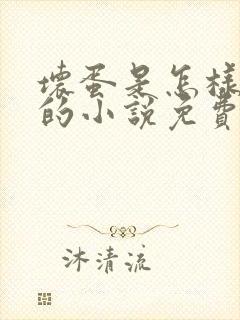 壞蛋是怎樣
的小說免費
沐清流